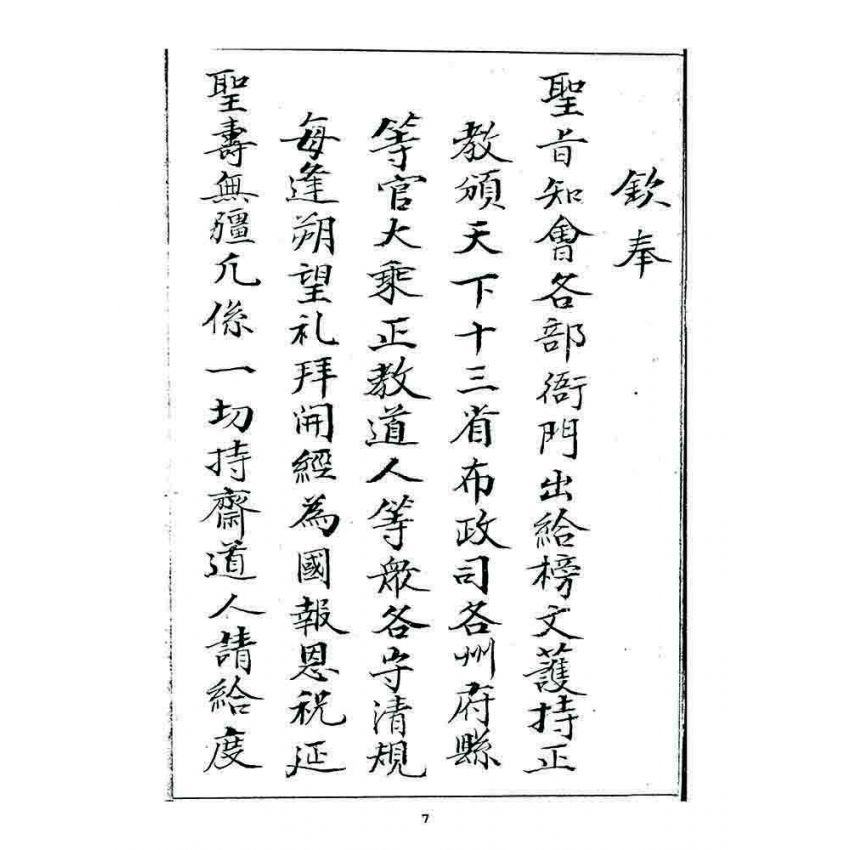 欽奉
聖旨知會各部衙門出給榜文護持正
教頒天下十三省布政司各州府縣
等官大乘正教道人等衆各守清規
每逢朔望礼拜開經為國報恩祝延
聖壽無疆凢係一切持齋道人請給度
7